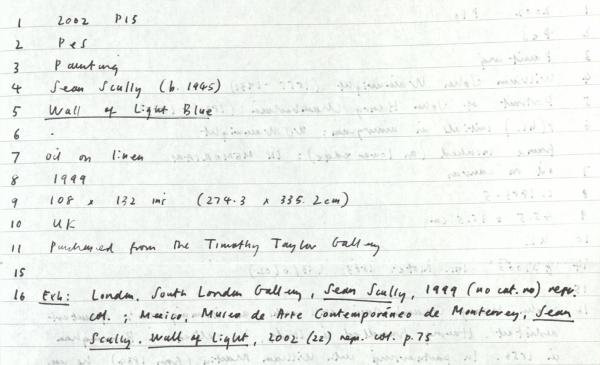 1 2002 P15
2 PeS
3 Painting
4 Sean Scully (b. 1945)
5 Wall of Light Blue
6 .
7 oil on linen
8 1999
9 108 x 132 ins (274.3 x 335.2cm)
10 UK
11 Purchased from the Timothy Taylor Gallery
15
16 Exh: London, South London Gallery, Sean Scully, 1999 (no cat. no) repr.
col. ; Mexico, Museo de Arte Contemporáneo de Monterrey, Sean
Scully. Wall of Light, 2002 (22) repr. col. p.75